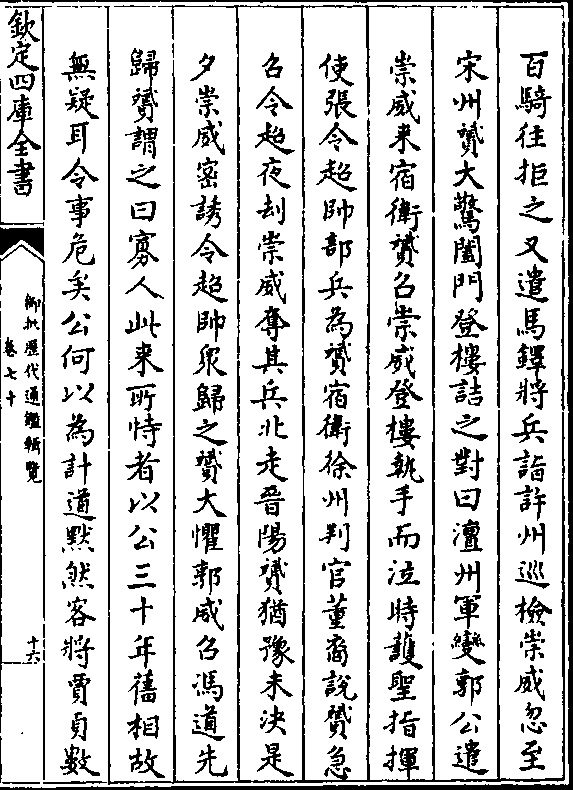 百騎往拒之又遣馬鐸將兵詣許州巡檢崇威忽至
宋州贇大驚闔門登樓詰之對曰澶州軍變郭公遣
崇威来宿衛贇召崇威登樓執手而泣時護聖指揮
使張令超帥部兵為贇宿衛徐州判官董裔說贇急
召令超夜刦崇威奪其兵北走晉陽贇猶豫未決是
夕崇威密誘令超帥衆歸之贇大懼郭威召馮道先
歸贇謂之曰寡人此来所恃者以公三十年舊相故
無疑耳令事危矣公何以為計道默然客將賈貞數
欽定四庫全書
御批歷代通鑑輯覽
卷七十
十六